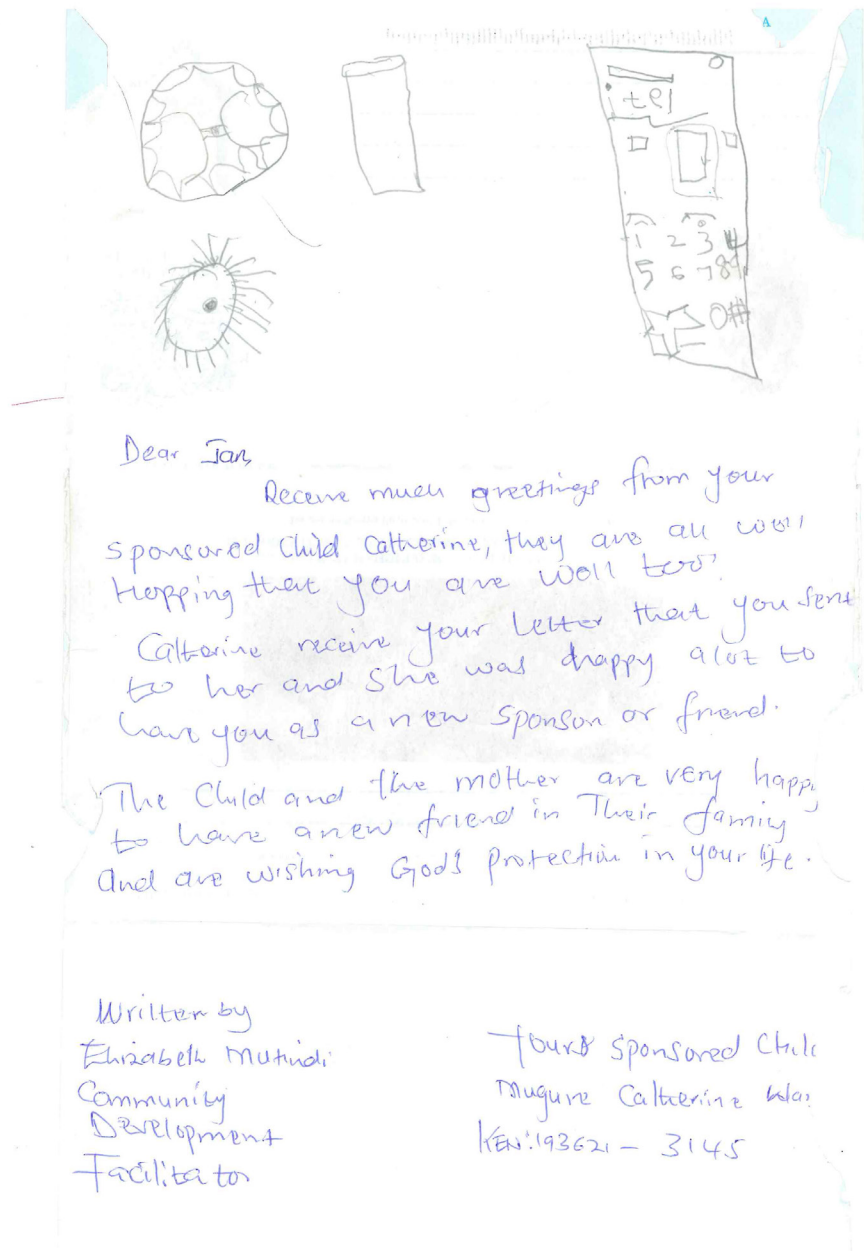 A
tel
1 2 3 4
5 6 7 8 9
0#
Dear Jan,
Receive much greetings from your
sponsored Child Catherine, they are all well
Hopping that you are well too.
Catherine receive your Letter that you sent
to her and she was happy alot to
have you as a new sponson or friend.
The Child and the mother are very happy
to have a new friend in Their family
and are wishing God's protection in your life.
Written by
Elizabeth Mutindi
Community
Development
Facilitator
Yours Sponsored Chil
Mugure Catherine
KEN:193621 - 3145